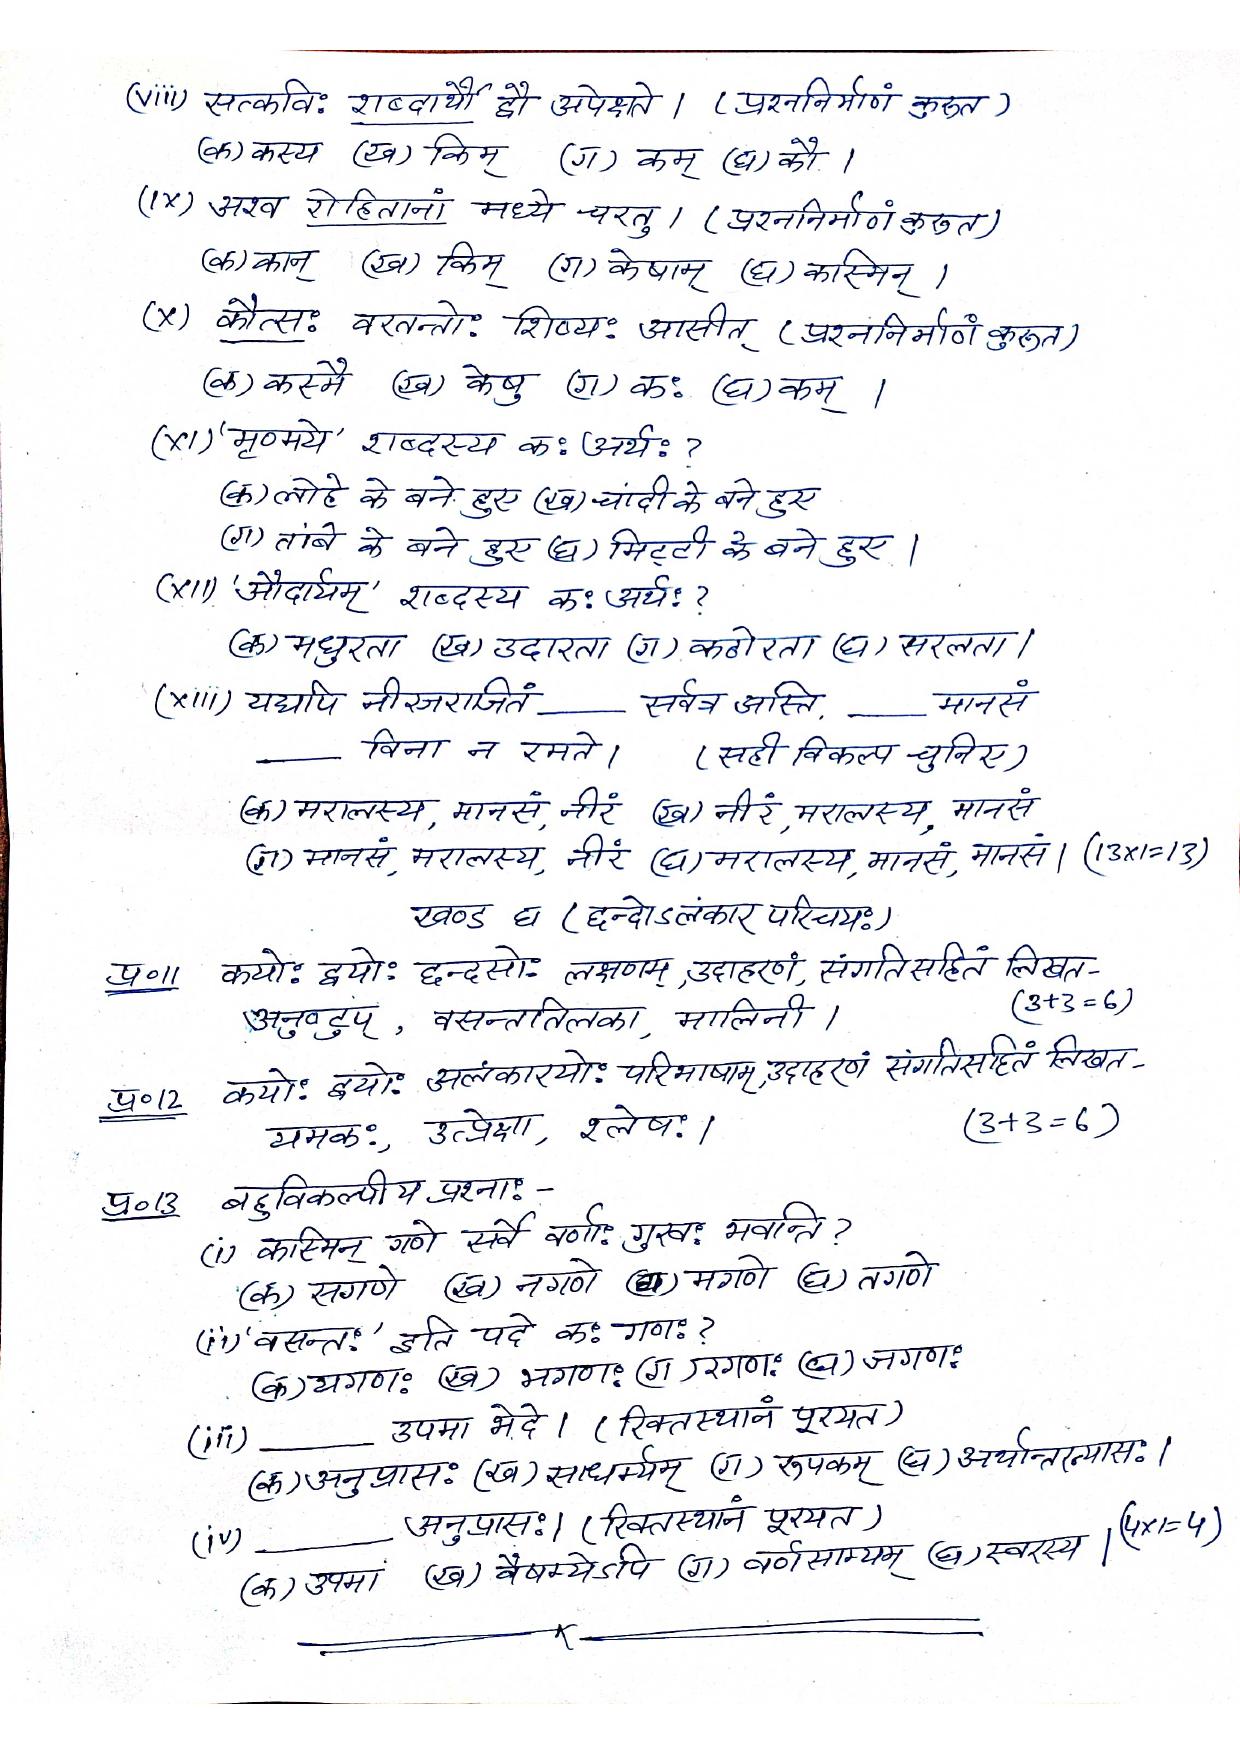 (viii) सत्कविः शब्दार्थौ द्वौ अपेक्षते । (प्रश्ननिर्माणं कुरूत)
(क) कस्य (ख) किम् (ग) कम् (घ) कौ ।
(ix) अश्व रोहितानां मध्ये चरतु । (प्रश्ननिर्माणं कुरुत)
(क) कान् (ख) किम् (ग) केषाम् (घ) कास्मिन् ।
(x) कौत्सः वरतन्तोः शिष्यः आसीत् (प्रश्ननिर्माणं कुरूत)
(क) कस्मै (ख) केषु (ग) कः (घ) कम् ।
(xi) 'मृण्मये' शब्दस्य कः अर्थः ?
(क) लोहे के बने हुए (ख) चांदी के बने हुए
(ग) तांबे के बने हुए (घ) मिट्टी के बने हुए ।
(xii) 'औदार्यम्' शब्दस्य कः अर्थः ?
(क) मधुरता (ख) उदारता (ग) कठोरता (घ) सरलता ।
(xiii) यद्यपि नीरजराजितं ____ सर्वत्र अस्ति, ____ मानसं
____ विना न रमते । (सही विकल्प चुनिए)
(क) मरालस्य, मानसं, नीरं (ख) नीरं, मरालस्य, मानसं
(ग) मानसं, मरालस्य, नीरं (घ) मरालस्य, मानसं, मानसं । (13x1=13)
खण्ड घ (छन्दोऽलंकार परिचयः)
प्र०11 कयोः द्वयोः छन्दसोः लक्षणम्, उदाहरणं, संगतिसहितं लिखत-
अनुष्टुप्, वसन्ततिलका, मालिनी । (3+3=6)
प्र०12 कयोः द्वयोः अलंकारयोः परिभाषाम्, उदाहरणं संगतिसहितं लिखत-
यमकः, उत्प्रेक्षा, श्लेषः । (3+3=6)
प्र०13 बहुविकल्पीय प्रश्नाः -
(i) कास्मिन् गणे सर्वे वर्णाः गुरवः भवन्ति ?
(क) सगणे (ख) नगणे (ग) मगणे (घ) तगणे
(ii) 'वसन्तः' इति पदे कः गणः ?
(क) यगणः (ख) भगणः (ग) रगणः (घ) जगणः
(iii) ______ उपमा भेदे । (रिक्तस्थानं पूरयत)
(क) अनुप्रासः (ख) साधर्म्यम् (ग) रूपकम् (घ) अर्थान्तरन्यासः ।
(iv) ______ अनुप्रासः । (रिक्तस्थानं पूरयत)
(क) उपमां (ख) वैषम्येऽपि (ग) वर्णसाम्यम् (घ) स्वरस्य । (4x1=4)